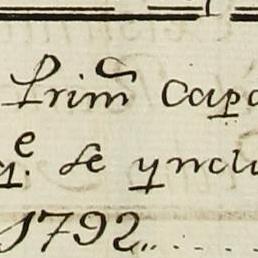 Prim̃ Capa
q.ᵉ se ynclu
1792,,....